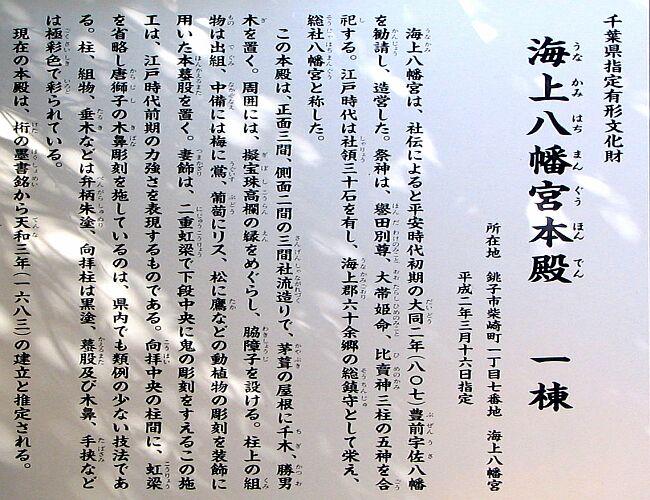 千葉県指定有形文化財
海上八幡宮本殿　一棟
うなかみはちまんぐうほんでん
所在地　銚子市柴崎町一丁目七番地　海上八幡宮
平成二年三月十六日指定
海上八幡宮は、社伝によると平安時代初期の大同二年（八〇七）豊前宇佐八幡
を勧請し、造営した。祭神は、譽田別尊、大帯姫命、比賣神三柱の五神を合
祀する。江戸時代は社領三十石を有し、海上郡六十余郷の総鎮守として栄え、
総社八幡宮と称した。
この本殿は、正面三間、側面二間の三間社流造りで、茅葺の屋根に千木、勝男
木を置く。周囲には、擬宝珠高欄の縁をめぐらし、脇障子を設ける。柱上の組
物は出組、中備には梅に鶯、葡萄にリス、松に鷹などの動植物の彫刻を装飾に
用いた本蟇股を置く。妻飾は、二重虹梁で下段中央に鬼の彫刻をすえるこの施
工は、江戸時代前期の力強さを表現するものである。向拝中央の柱間に、虹梁
を省略し唐獅子の木鼻彫刻を施しているのは、県内でも類例の少ない技法であ
る。柱、組物、垂木などは弁柄朱塗、向拝柱は黒塗、蟇股及び木鼻、手挟など
は極彩色で彩られている。
現在の本殿は、桁の墨書銘から天和三年（一六八三）の建立と推定される。